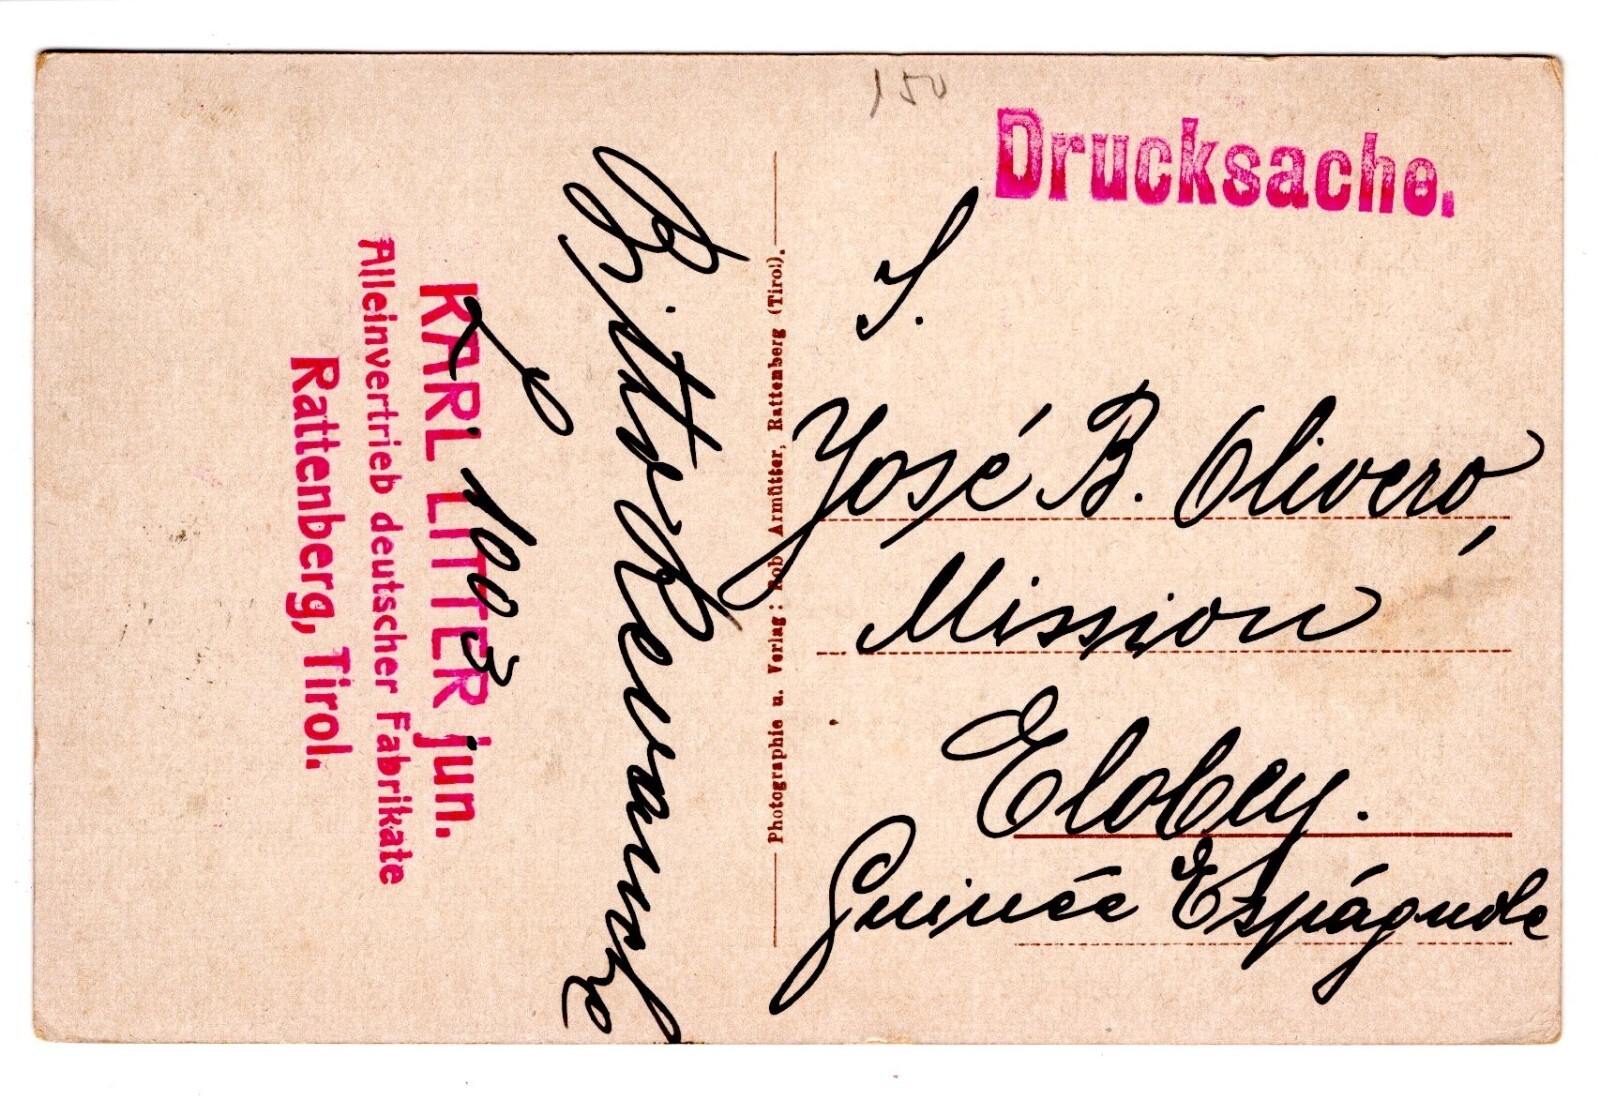 150
Drucksache.
S.
José B. Olivero,
Mission
Elobey.
Guinée Espágnole
Photographie u. Verlag: Rob. Armütter, Rattenberg (Tirol).
Bitte Revanche
1003
KARL LITTER jun.
Alleinvertrieb deutscher Fabrikate
Rattenberg, Tirol.